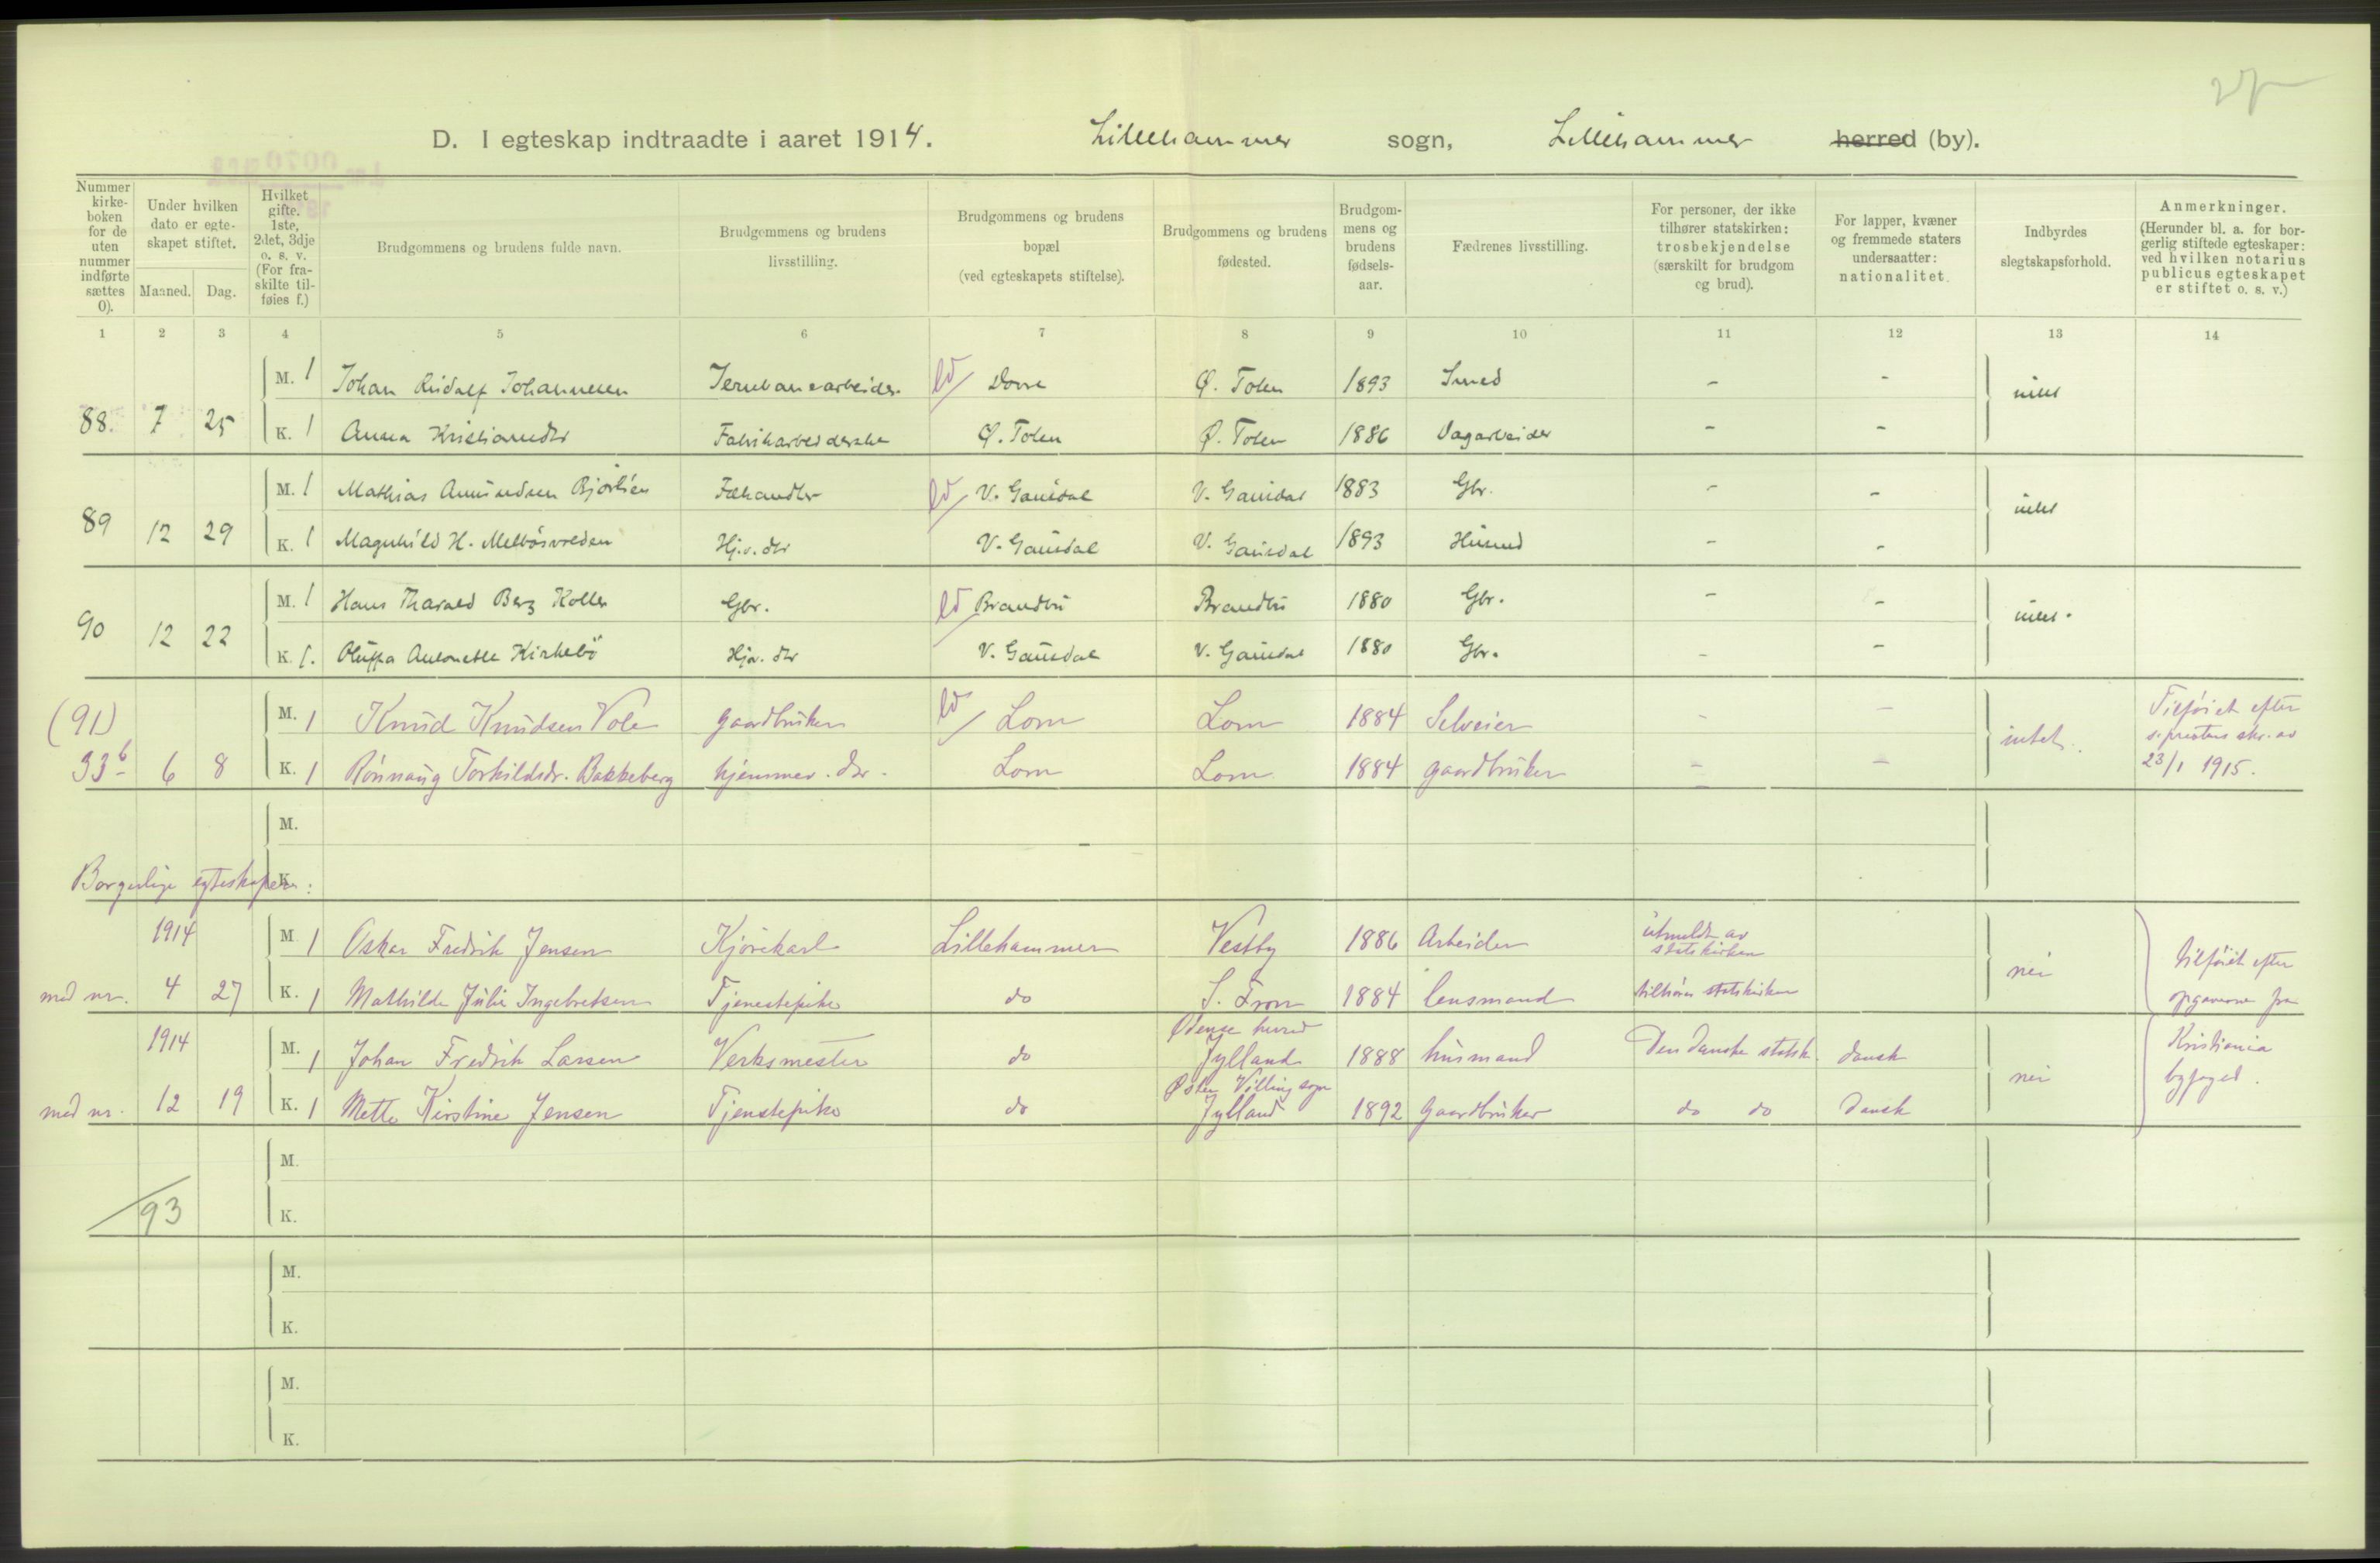 D. I egteskap indtraadte i aaret 1914. Lillehammer sogn, Lillehammer herred (by).
Nummer kirke-boken for de uten nummer indførte sættes 0).
Under hvilken dato er egte-skapet stiftet.
Maaned. Dag.
Hvilket gifte. 1ste, 2det, 3dje o. s. v. (For fra-skilte til-føies f.)
Brudgommens og brudens fulde navn.
Brudgommens og brudens livsstilling.
Brudgommens og brudens bopæl (ved egteskapets stiftelse).
Brudgommens og brudens fødested.
Brudgom-mens og brudens fødsels-aar.
Fædrenes livsstilling.
For personer, der ikke tilhører statskirken: trosbekjendelse (særskilt for brudgom og brud).
For lapper, kvæner og fremmede staters undersaatter: nationalitet.
Indbyrdes slegtskapsforhold.
Anmerkninger. (Herunder bl. a. for bor-gerlig stiftede egteskaper: ved hvilken notarius publicus egteskapet er stiftet o. s. v.)
1 2 3 4 5 6 7 8 9 10 11 12 13 14
M. 1 Johan Rudolf Johannesen Jernbanearbeider Dovre Ø. Toten 1893 Smed - - intet
88. 7 25 K. 1 Anna Kristiansdtr Fabrikarbeiderske Ø. Toten Ø. Toten 1886 Dagarbeider - -
M. 1 Mathias Amundsen Bjørlien Fæhandler V. Gausdal V. Gausdal 1883 Gbr. - - intet
89 12 29 K. 1 Magnhild H. Hj.v. dtr V. Gausdal V. Gausdal 1893 Husmd - -
M. 1 Hans Tharald Berg Koller Gbr. Brandbu Brandbu 1880 Gbr. - - intet.
90 12 22 K. 1. Oluffa Antonette Kirkebö Hjv. dtr V. Gausdal V. Gausdal 1880 Gbr. - -
(91) M. 1 Knud Knudsen Vole gaardbruker Lom Lom 1884 Selveier - - intet. Tilføiet efter s.prestens skr. av 23/1 1915.
33b 6 8 K. 1 Rönnaug Torkildsdr. Bakkeberg hjemmev. dr. Lom Lom 1884 gaardbruker - -
M.
Borgerlige egteskaper: K.
1914 M 1 Oskar Fredrik Jensen Kjørekarl Lillehammer Vestby 1886 Arbeider utmeldt av statskirken nei Tilføiet efter opgaverne fra Kristiania byfoged.
med nr. 4 27 K. 1 Mathilde Julie Ingebretsen Tjenestepike do S. Fron 1884 lensmand tilhører statskirken
1914 M. 1 Johan Fredrik Larsen Verksmester do Odense herred Jylland 1888 husmand Den danske statsk. dansk nei
med nr. 12 19 K. 1 Mette Kirstine Jensen Tjenstepike do Øster Velling sogn Jylland 1892 Gaardbruker do do Dansk
M.
93 K.
M.
K.
M.
K.